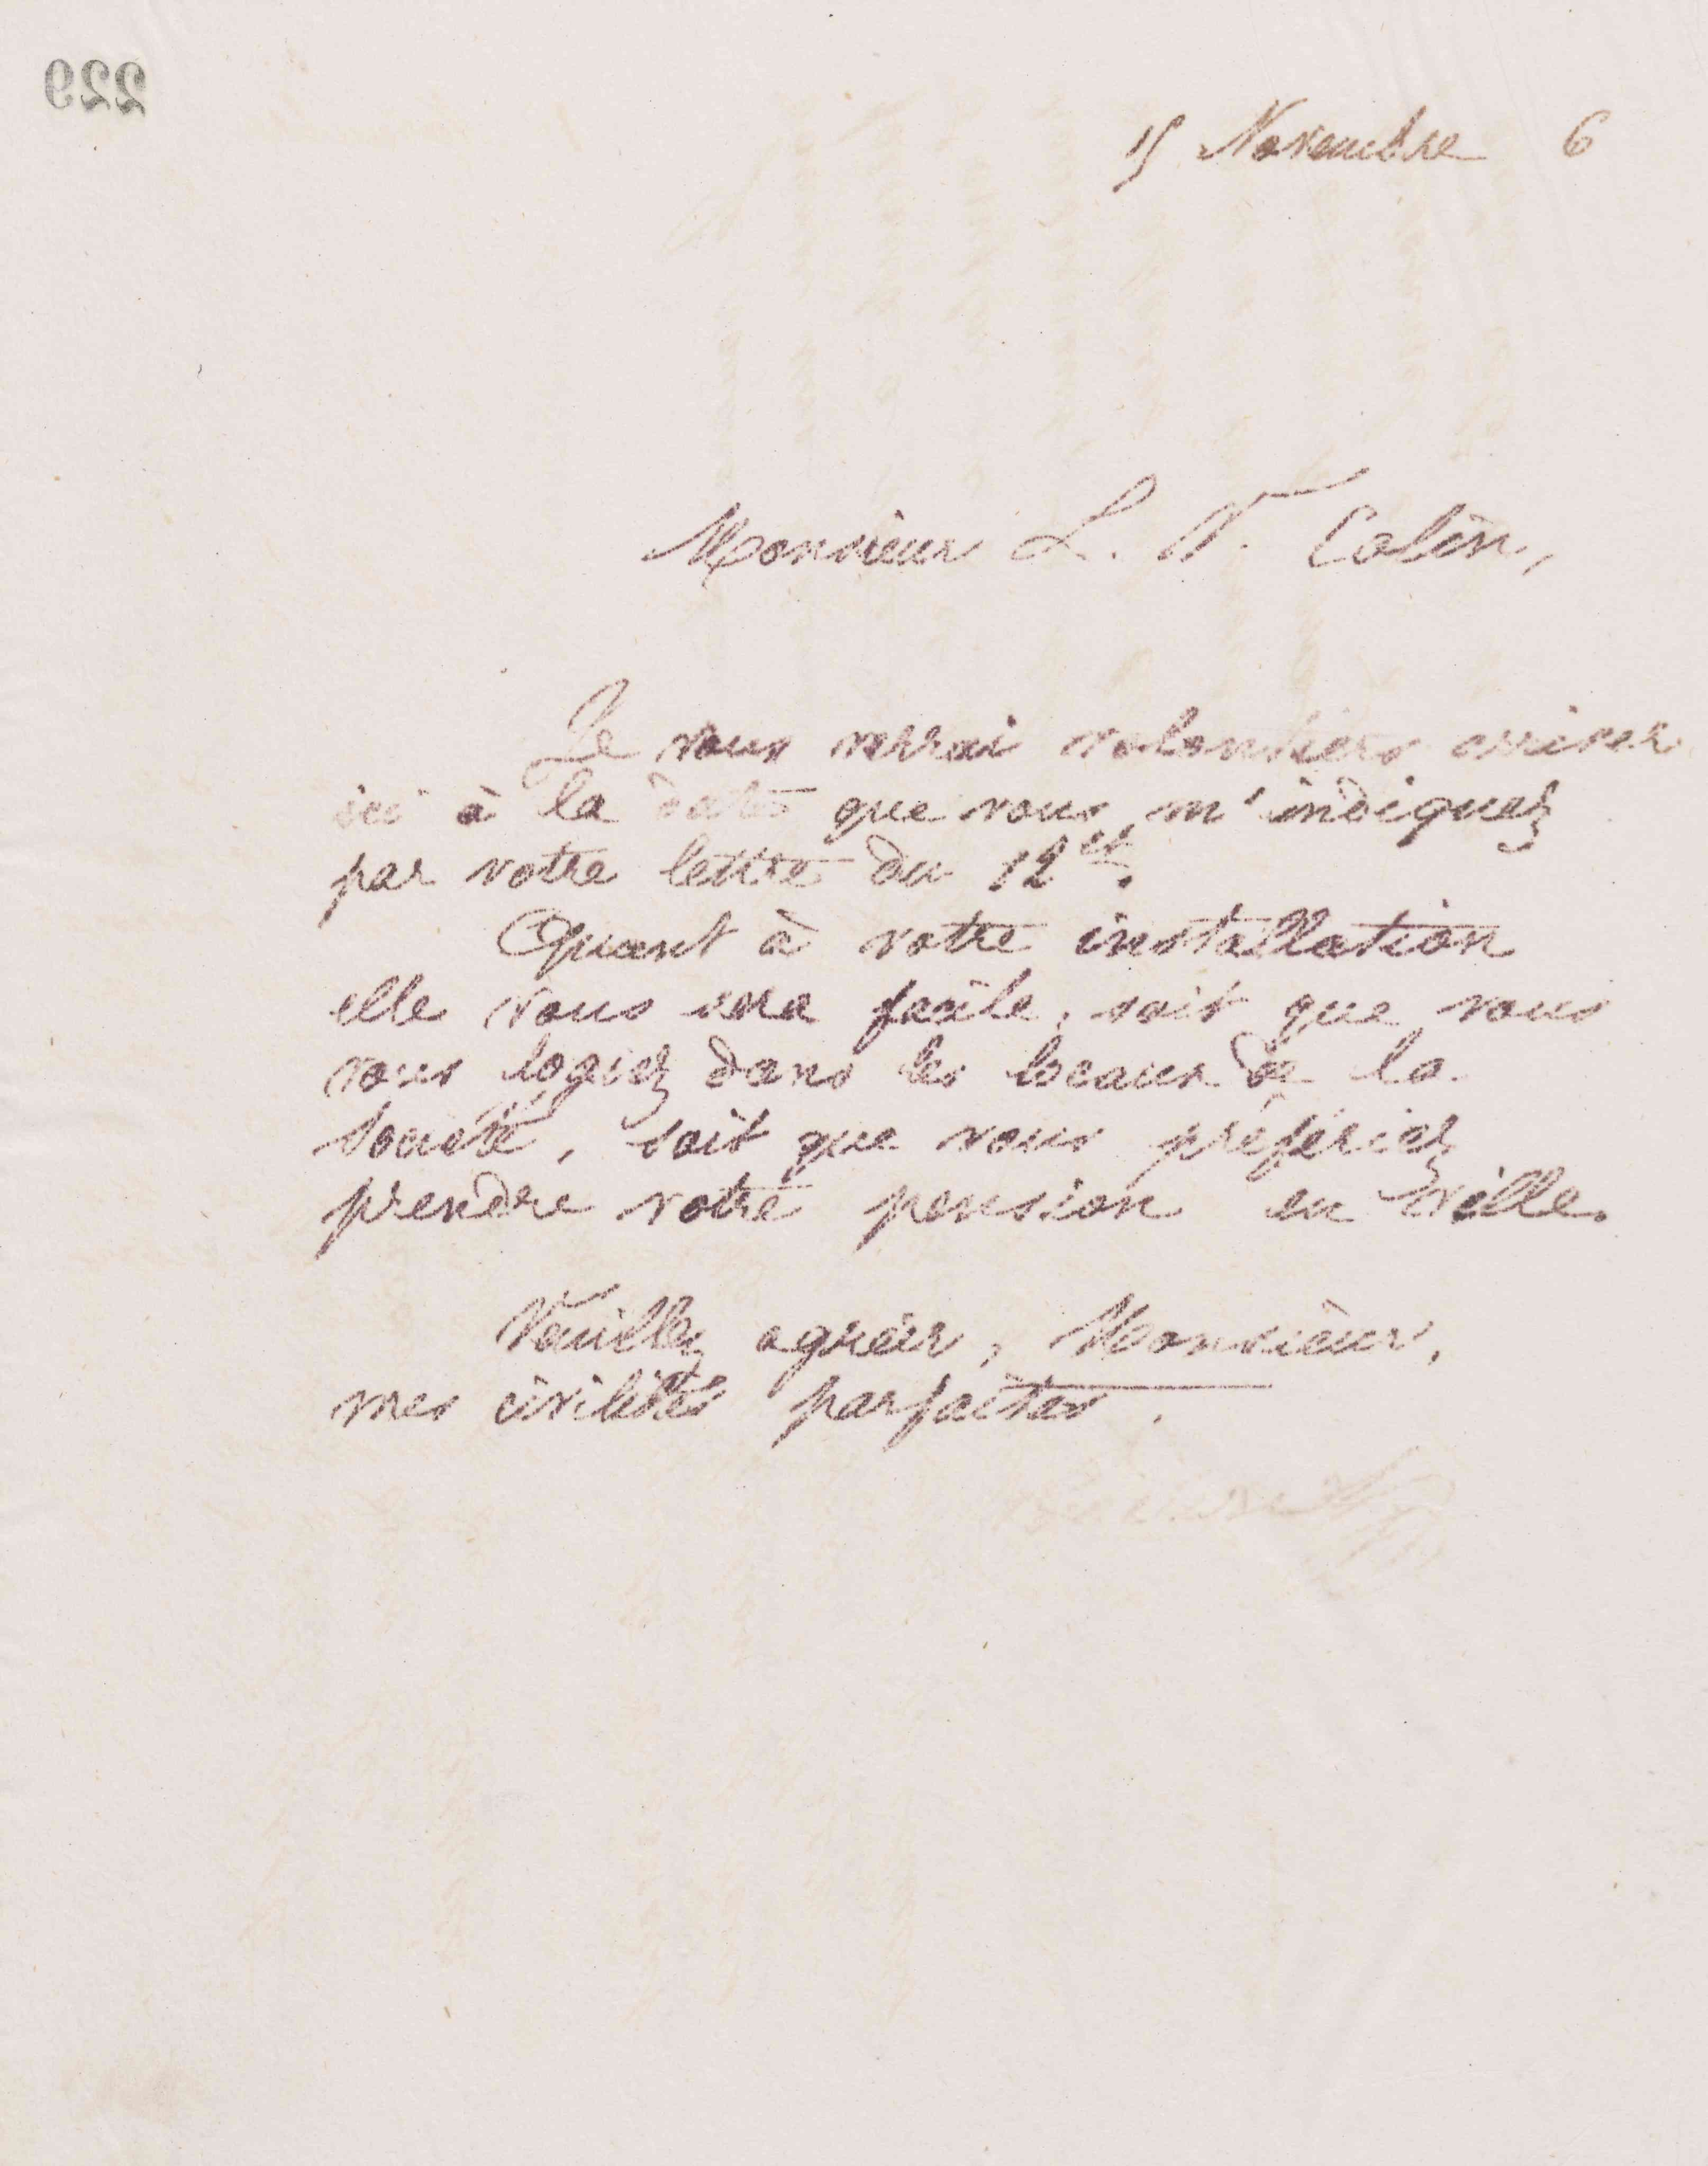 229
15 Novembre 6
Monsieur L. V. Colin,
Je vous verrai volontiers arriver
ici à la date que vous m'indiquez
par votre lettre du 12 ct.
Quant à votre installation
elle vous sera facile, soit que vous
vous logiez dans les locaux de la
Société, soit que vous préfériez
prendre votre pension en ville.
Veuillez agréer, Monsieur,
mes civilités parfaites.